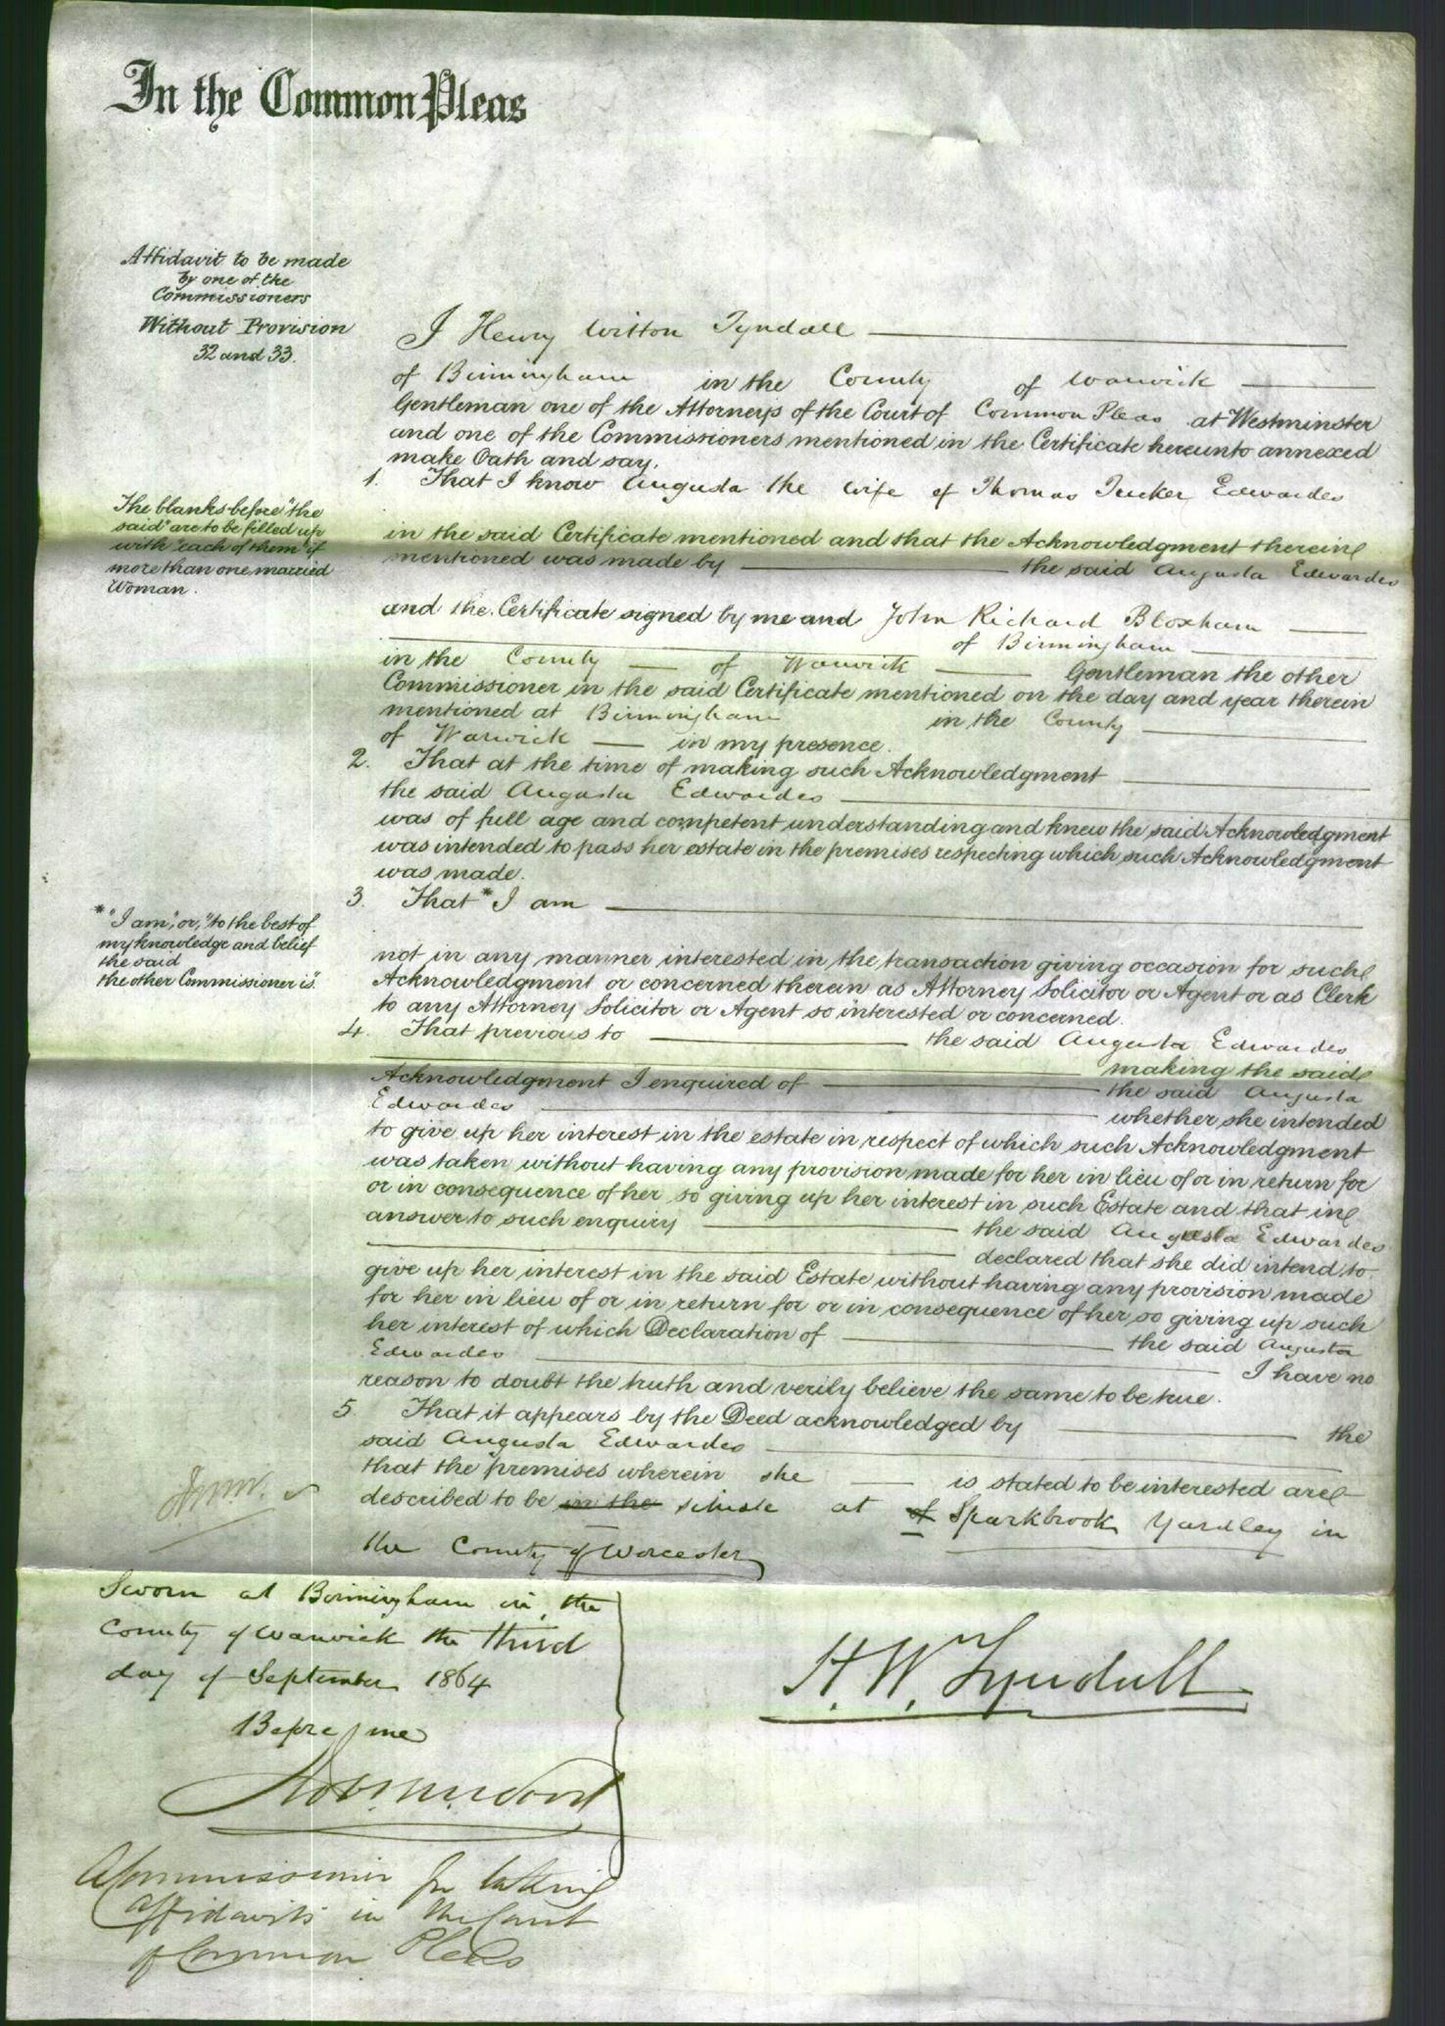 In the Common Pleas
Affidavit to be made
by one of the
Commissioners
Without Provision
32 and 33.
I Henry Witton Tyndall
of Birmingham in the County of Warwick
Gentleman one of the Attorneys of the Court of Common Pleas at Westminster
and one of the Commissioners mentioned in the Certificate hereunto annexed
make Oath and say.
1. That I know Augusta the wife of Thomas Tucker Edwardes
The blanks before "the
said" are to be filled up
with "each of them" if
more than one married
Woman.
in the said Certificate mentioned and that the Acknowledgment therein
mentioned was made by the said Augusta Edwardes
and the Certificate signed by me and John Richard Bloxham
of Birmingham
in the County of Warwick Gentleman the other
Commissioner in the said Certificate mentioned on the day and year therein
mentioned at Birmingham in the County
of Warwick in my presence.
2. That at the time of making such Acknowledgment
the said Augusta Edwardes
was of full age and competent understanding and knew the said Acknowledgment
was intended to pass her estate in the premises respecting which such Acknowledgment
was made.
3. That * I am
* "I am", or, "to the best of
my knowledge and belief
the said
the other Commissioner is".
not in any manner interested in the transaction giving occasion for such
Acknowledgment or concerned therein as Attorney Solicitor or Agent or as Clerk
to any Attorney Solicitor or Agent so interested or concerned.
4. That previous to the said Augusta Edwardes
making the said
Acknowledgment I enquired of the said Augusta
Edwardes whether she intended
to give up her interest in the estate in respect of which such Acknowledgment
was taken without having any provision made for her in lieu of or in return for
or in consequence of her so giving up her interest in such Estate and that in
answer to such enquiry the said Augusta Edwardes
declared that she did intend to
give up her interest in the said Estate without having any provision made
for her in lieu of or in return for or in consequence of her so giving up such
her interest of which Declaration of the said Augusta
Edwardes I have no
reason to doubt the truth and verily believe the same to be true.
5 That it appears by the Deed acknowledged by the
said Augusta Edwardes
that the premises wherein she is stated to be interested are
described to be in the situate at of Sparkbrook Yardley in
the County of Worcester
Sworn at Birmingham in the
County of Warwick the third
day of September 1864
Before me
H. W. Tyndall
A Commissioner for taking
Affidavits in the Court
of Common Pleas